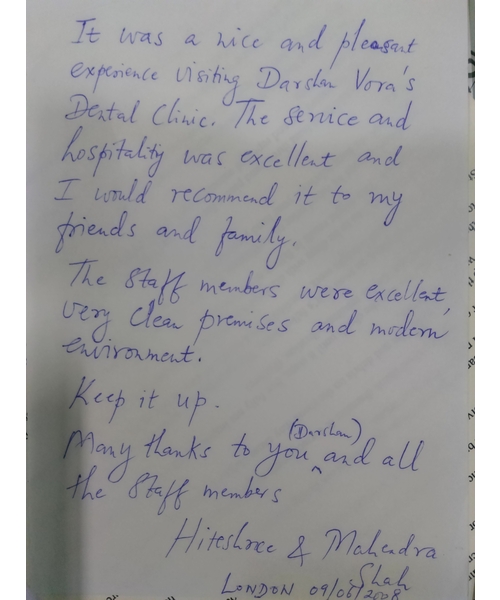 It was a nice and pleasant
experience visiting Darshan Vora's
Dental Clinic. The service and
hospitality was excellent and
I would recommend it to my
friends and family.
The staff members were excellent,
very clean premises and modern
environment.
Keep it up.
Many thanks to you (Darshan) and all
the staff members
Hiteshree & Mahendra
Shah
LONDON 09/06/2008